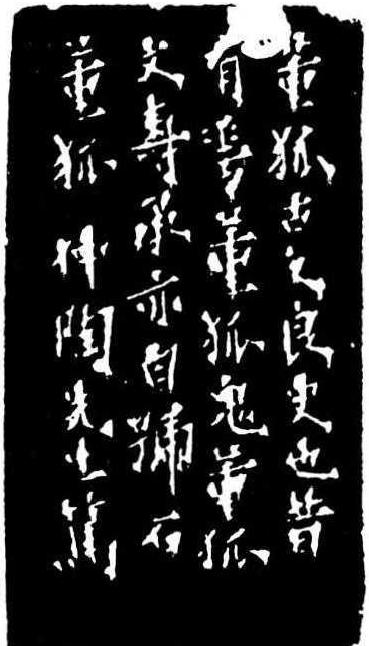 董狐古之良史也昔
有董狐鬼董狐
文壽承亦自號石
董狐仲陶先生篤